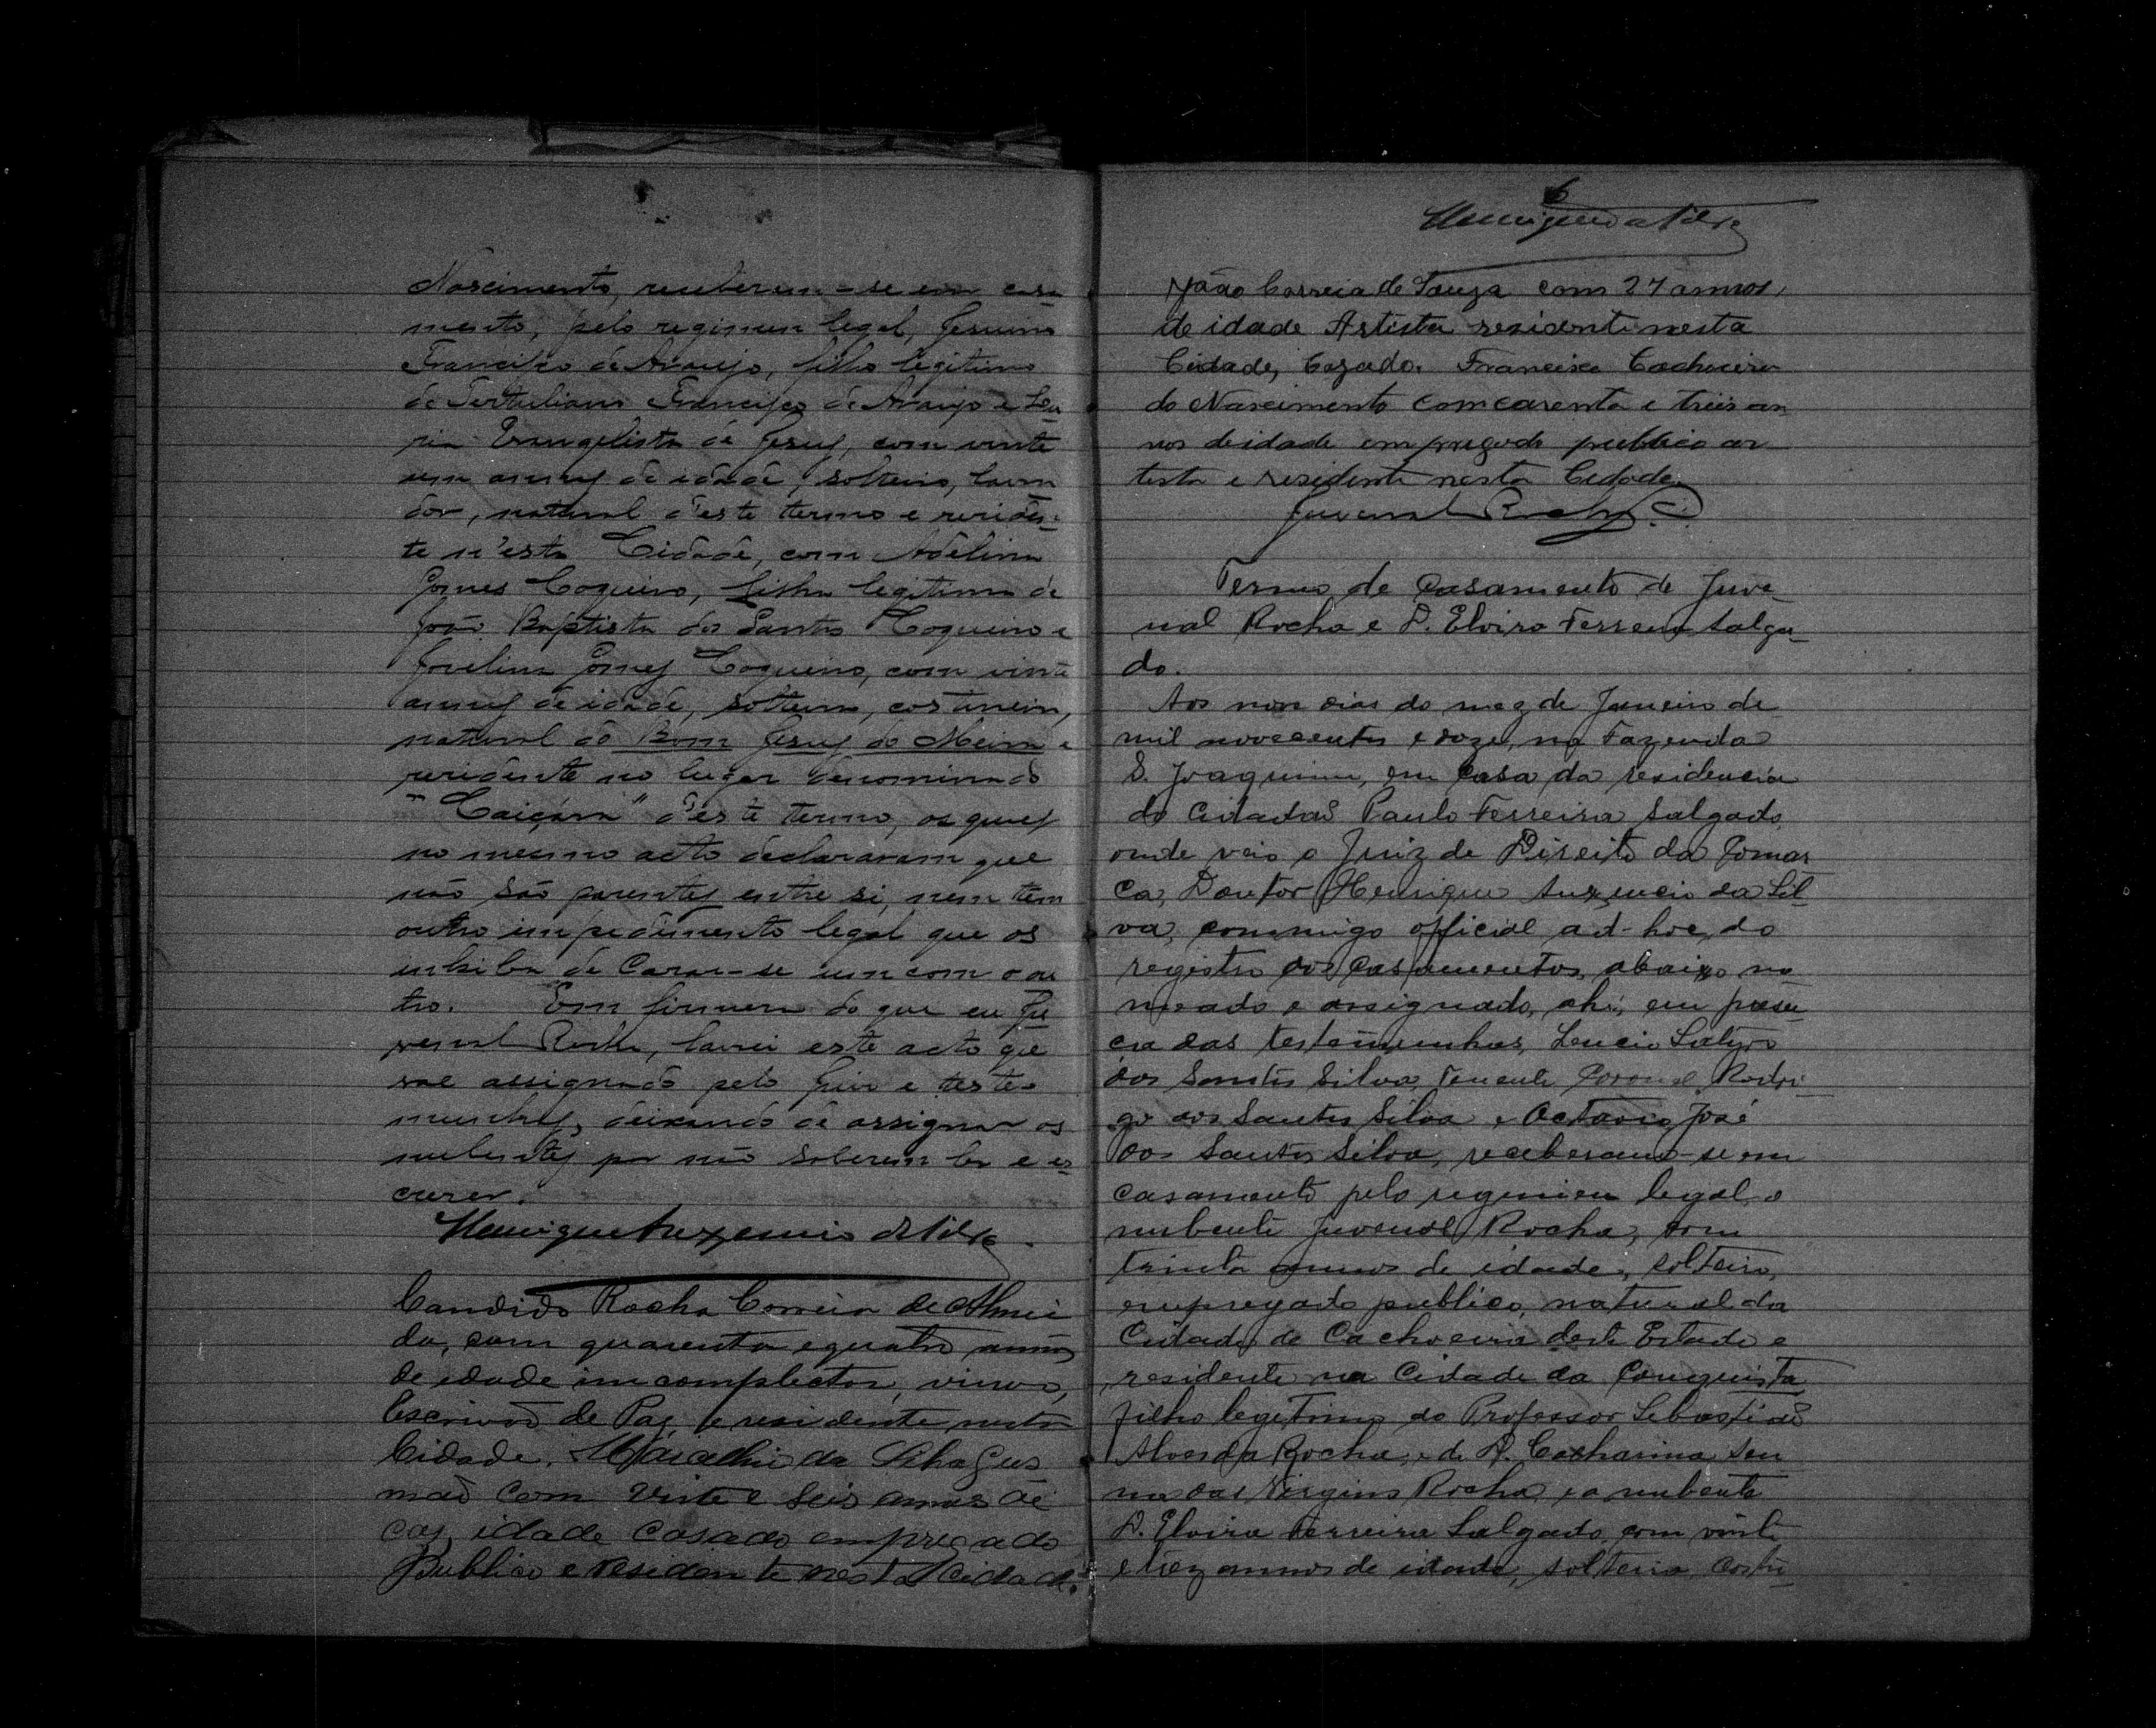 Nascimento, receberam-se em casa
mento, pelo regimen legal, Jesuino
Francisco de Araujo, filho legitimo
de Tertuliano Francisco de Araujo e
Evangelista de Jesus, com vinte
um annos de idade, solteiro, lavra
dor, natural d'este termo e residen-
te n'esta Cidade, com Adelina
Gomes Coqueiro, filha legitima de
João Baptista dos Santos Coqueiro e
Jovelina Gomes Coqueiro, com vinte
annos de idade, solteira, costureira,
natural do Bom Jesus do Meira e
residente no lugar denominado
"Caiçára" d'este termo, os quaes
no mesmo acto declararam que
não são parentes entre si, nem tem
outro impedimento legal que os
inhiba de casar-se um com o ou
tro. Em firmesa do que eu Ju
venal Rocha, lavrei este acto que
vae assignado pelo Juiz e teste-
munhas, deixando de assignar os
nubentes por não saberem ler e es
crever.
Henrique Auxencio da Silva
Candido Rocha Correia de Almei
da, com quarenta e quatro annos
de idade incompletos, viuvo,
Escrivão de Paz, e residente nesta
Cidade. da Gus
mão com vinte e seis annos de
idade casado empregado
Publico e residente nesta Cidade.
6
Henrique da Silva
João Correia de Souza com 27 annos,
de idade Artista residente nesta
Cidade, Cazado. Francisco Cachoeira
do Nascimento com carenta e treis an
nos de idade empregado publico ar
tista e residente nesta Cidade.
Juvenal Rocha
Termo de Casamento de Juve-
nal Rocha e D. Elvira Ferreira Salga-
do.
Aos nove dias do mez de Janeiro de
mil novecentos e doze, na Fazenda
S. Joaquim, em casa da residencia
do Cidadão Paulo Ferreira Salgado,
onde veio o Juiz de Direito da Comar
ca, Doutor Henrique Auxencio da Sil-
va, commigo official ad-hoc, do
registro dos casamentos, abaixo no
meado e assignado, ahi, em presen-
ça das testemunhas, Leucio Satyro
dos Santos Silva, Tenente Coronel Rodri-
go dos Santos Silva e Octavio José
dos Santos Silva, receberam-se em
casamento pelo regimen legal o
nubente Juvenal Rocha, com
trinta annos de idade, solteiro,
empregado publico, natural da
Cidade de Cachoeira deste Estado e
residente na Cidade da Conquista
filho legitimo do Professor Sebastião
Alves da Rocha e de D. Catharina
das Virgens Rocha, e a nubente
D. Elvira Ferreira Salgado, com vinte
e trez annos de idade, solteira, costu-